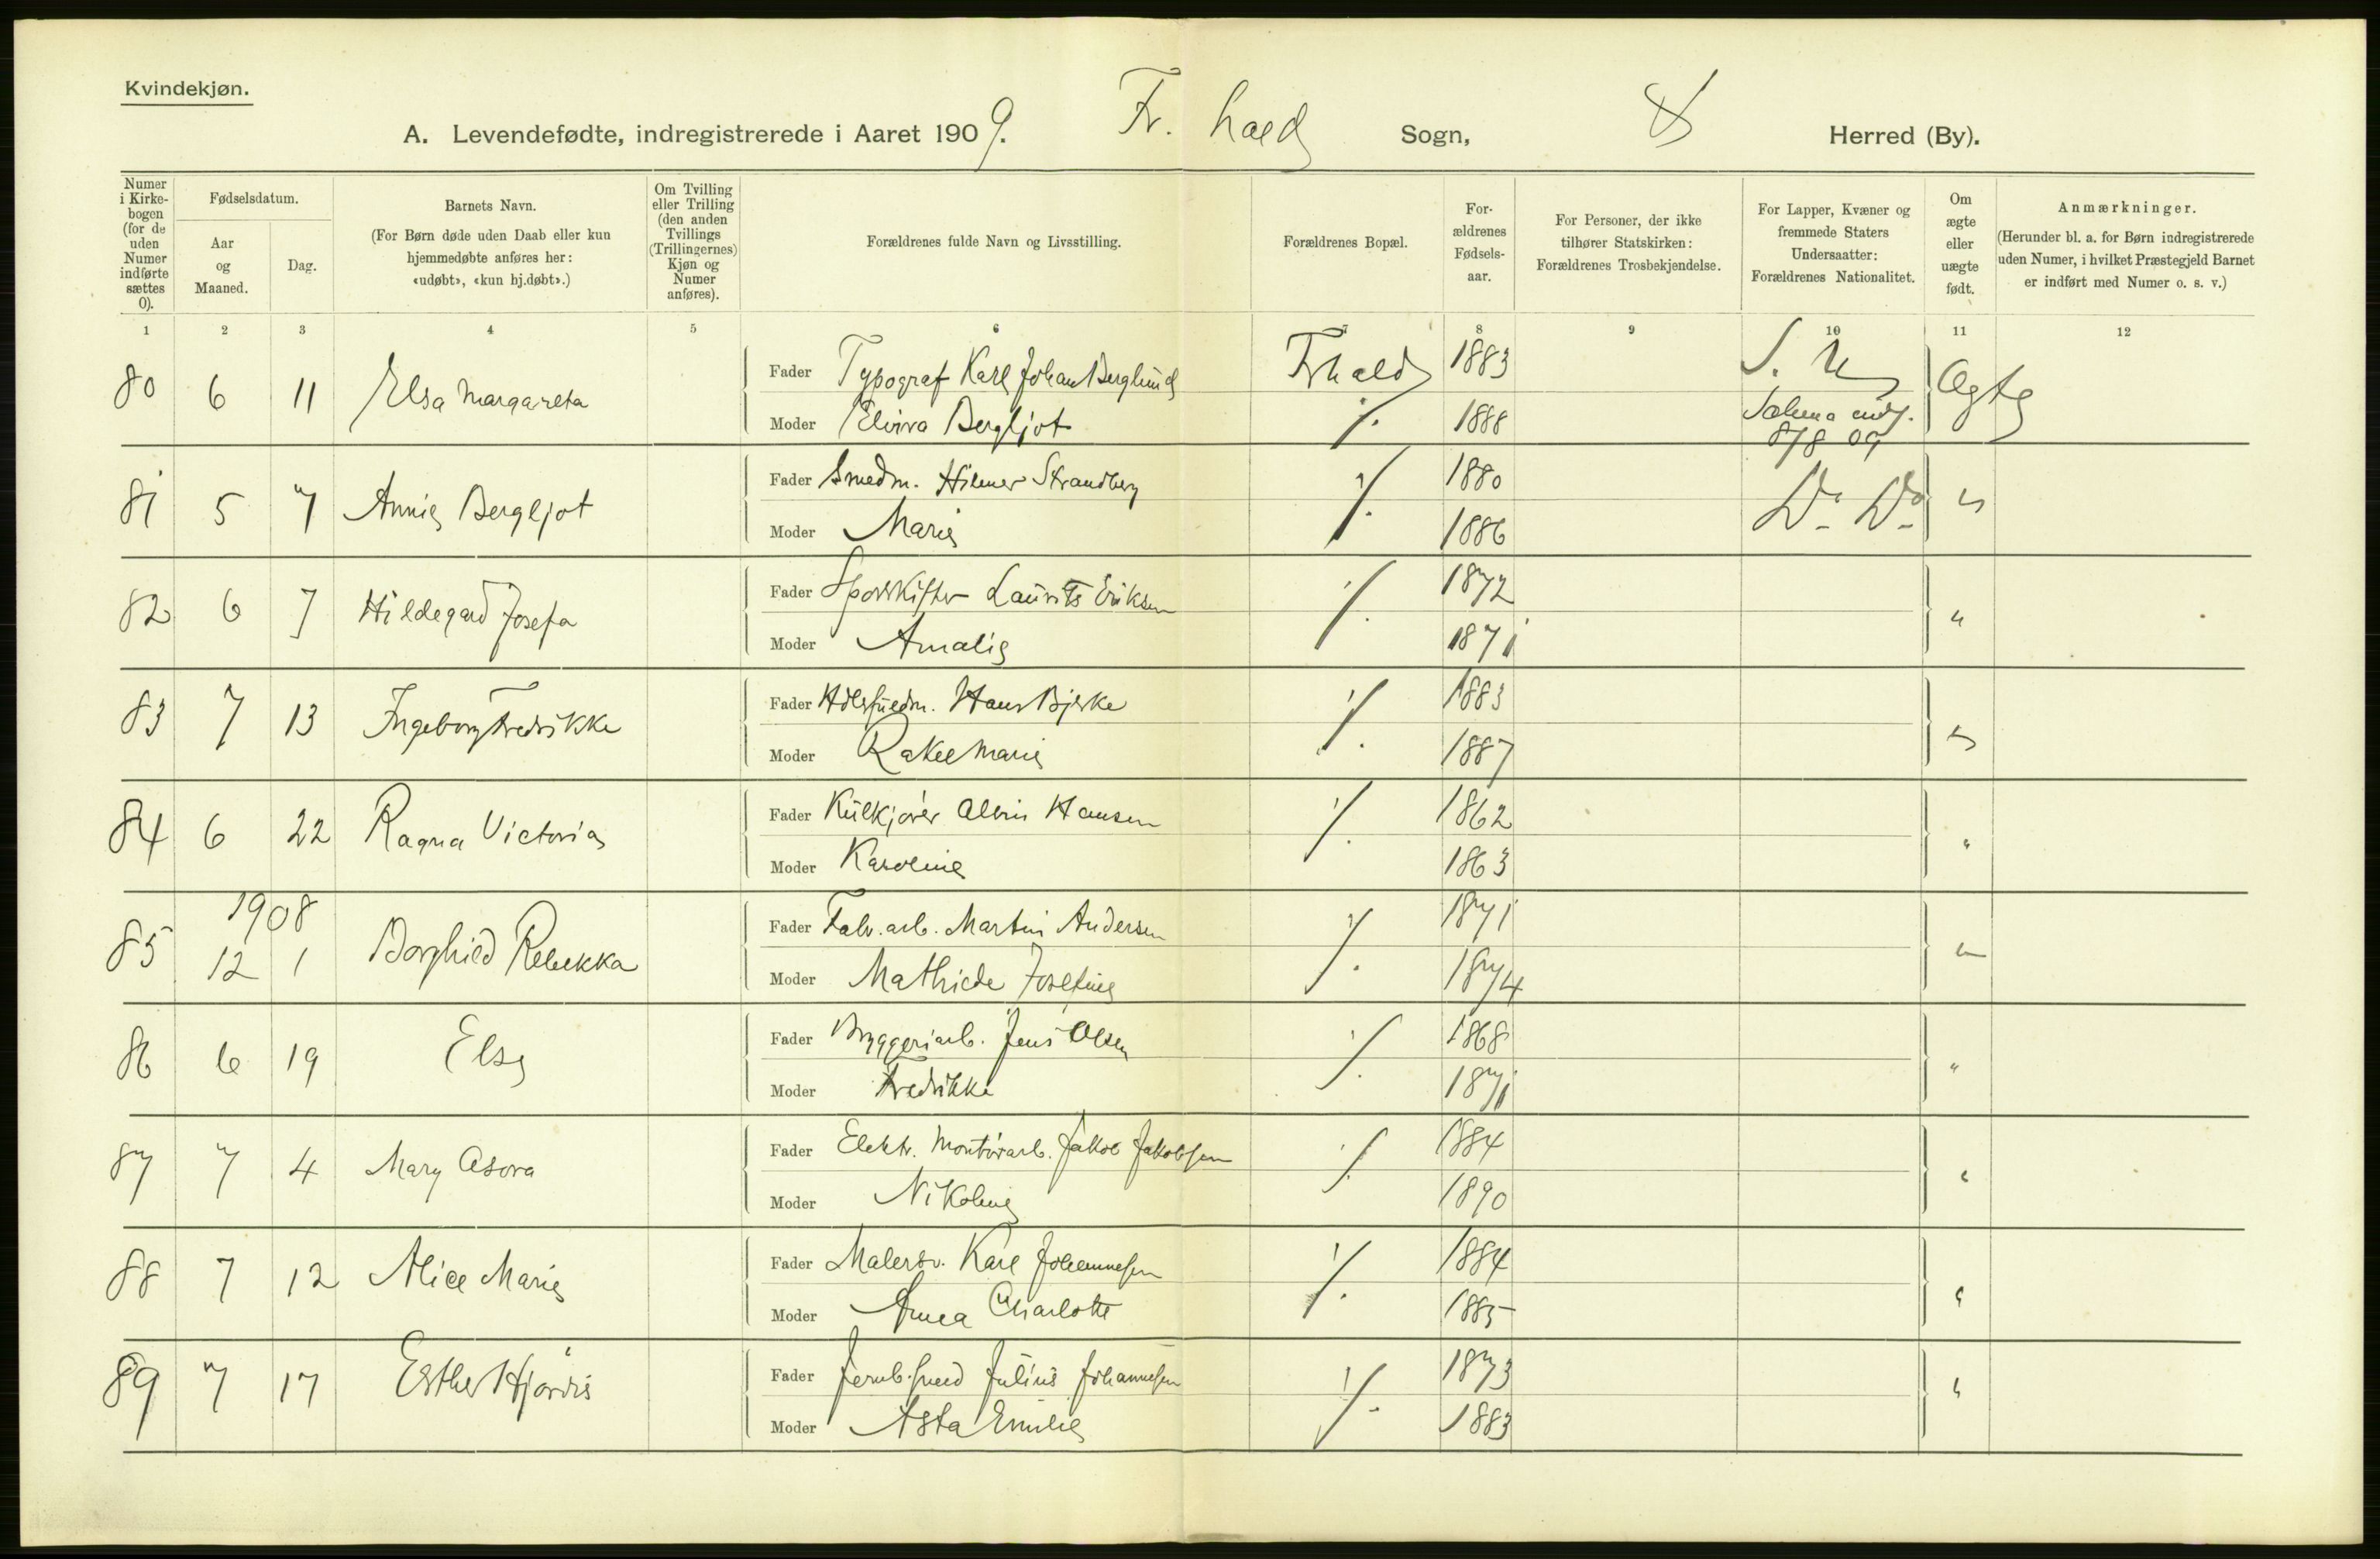 Kvindekjøn.
A. Levendefødte, indregistrerede i Aaret 1909. Fr. hald Sogn, Herred (By).
Numer i Kirkebogen (for de uden Numer indførte sættes 0).
Fødselsdatum.
Aar og Maaned.
Dag.
Barnets Navn.
(For Børn døde uden Daab eller kun hjemmedøbte anføres her: «udøbt», «kun hj.døbt».)
Om Tvilling eller Trilling (den anden Tvillings (Trillingernes) Kjøn og Numer anføres).
Forældrenes fulde Navn og Livsstilling.
Forældrenes Bopæl.
Forældrenes Fødselsaar.
For Personer, der ikke tilhører Statskirken: Forældrenes Trosbekjendelse.
For Lapper, Kvæner og fremmede Staters Undersaatter: Forældrenes Nationalitet.
Om ægte eller uægte født.
Anmærkninger.
(Herunder bl. a. for Børn indregistrerede uden Numer, i hvilket Præstegjeld Barnet er indført med Numer o. s. v.)
1 2 3 4 5 6 7 8 9 10 11 12
80 6 11 Elsa Margareta Fader Typograf Karl Johan Berglund Frhald 1883 Ægte
Moder Elvira Bergljot ./. 1888
81 5 7 Annie Bergljot Fader Smedm. Hilmer Strandberg ./. 1880 Do Do "
Moder Marie 1886
82 6 7 Hildegard Josefa Fader Sporskifter Laurits Eriksen ./. 1872 "
Moder Amalie 1871
83 7 13 Ingeborg Fredrikke Fader Hans Bjerke ./. 1883 "
Moder Rakel Marie 1887
84 6 22 Ragna Victoria Fader Kulkjører Albin Hansen ./. 1862 "
Moder Karoline 1863
1908
85 12 1 Borghild Rebekka Fader Fabr. arb. Martin Andersen ./. 1871 "
Moder Mathilde Josefine 1874
86 6 19 Else Fader Bryggeriarb. Jens Olsen ./. 1868 "
Moder Fredrikke 1871
87 7 4 Mary Asora Fader Elektr. Montørarb. Jakob Jakobsen ./. 1884 "
Moder Nikoline 1890
88 7 12 Alice Marie Fader Malersv. Karl Johannesen ./. 1884 "
Moder Anna Charlotte 1885
89 7 17 Esther Hjørdis Fader Jernb.smed Julius Johannesen ./. 1873 "
Moder Asta Emilie 1883